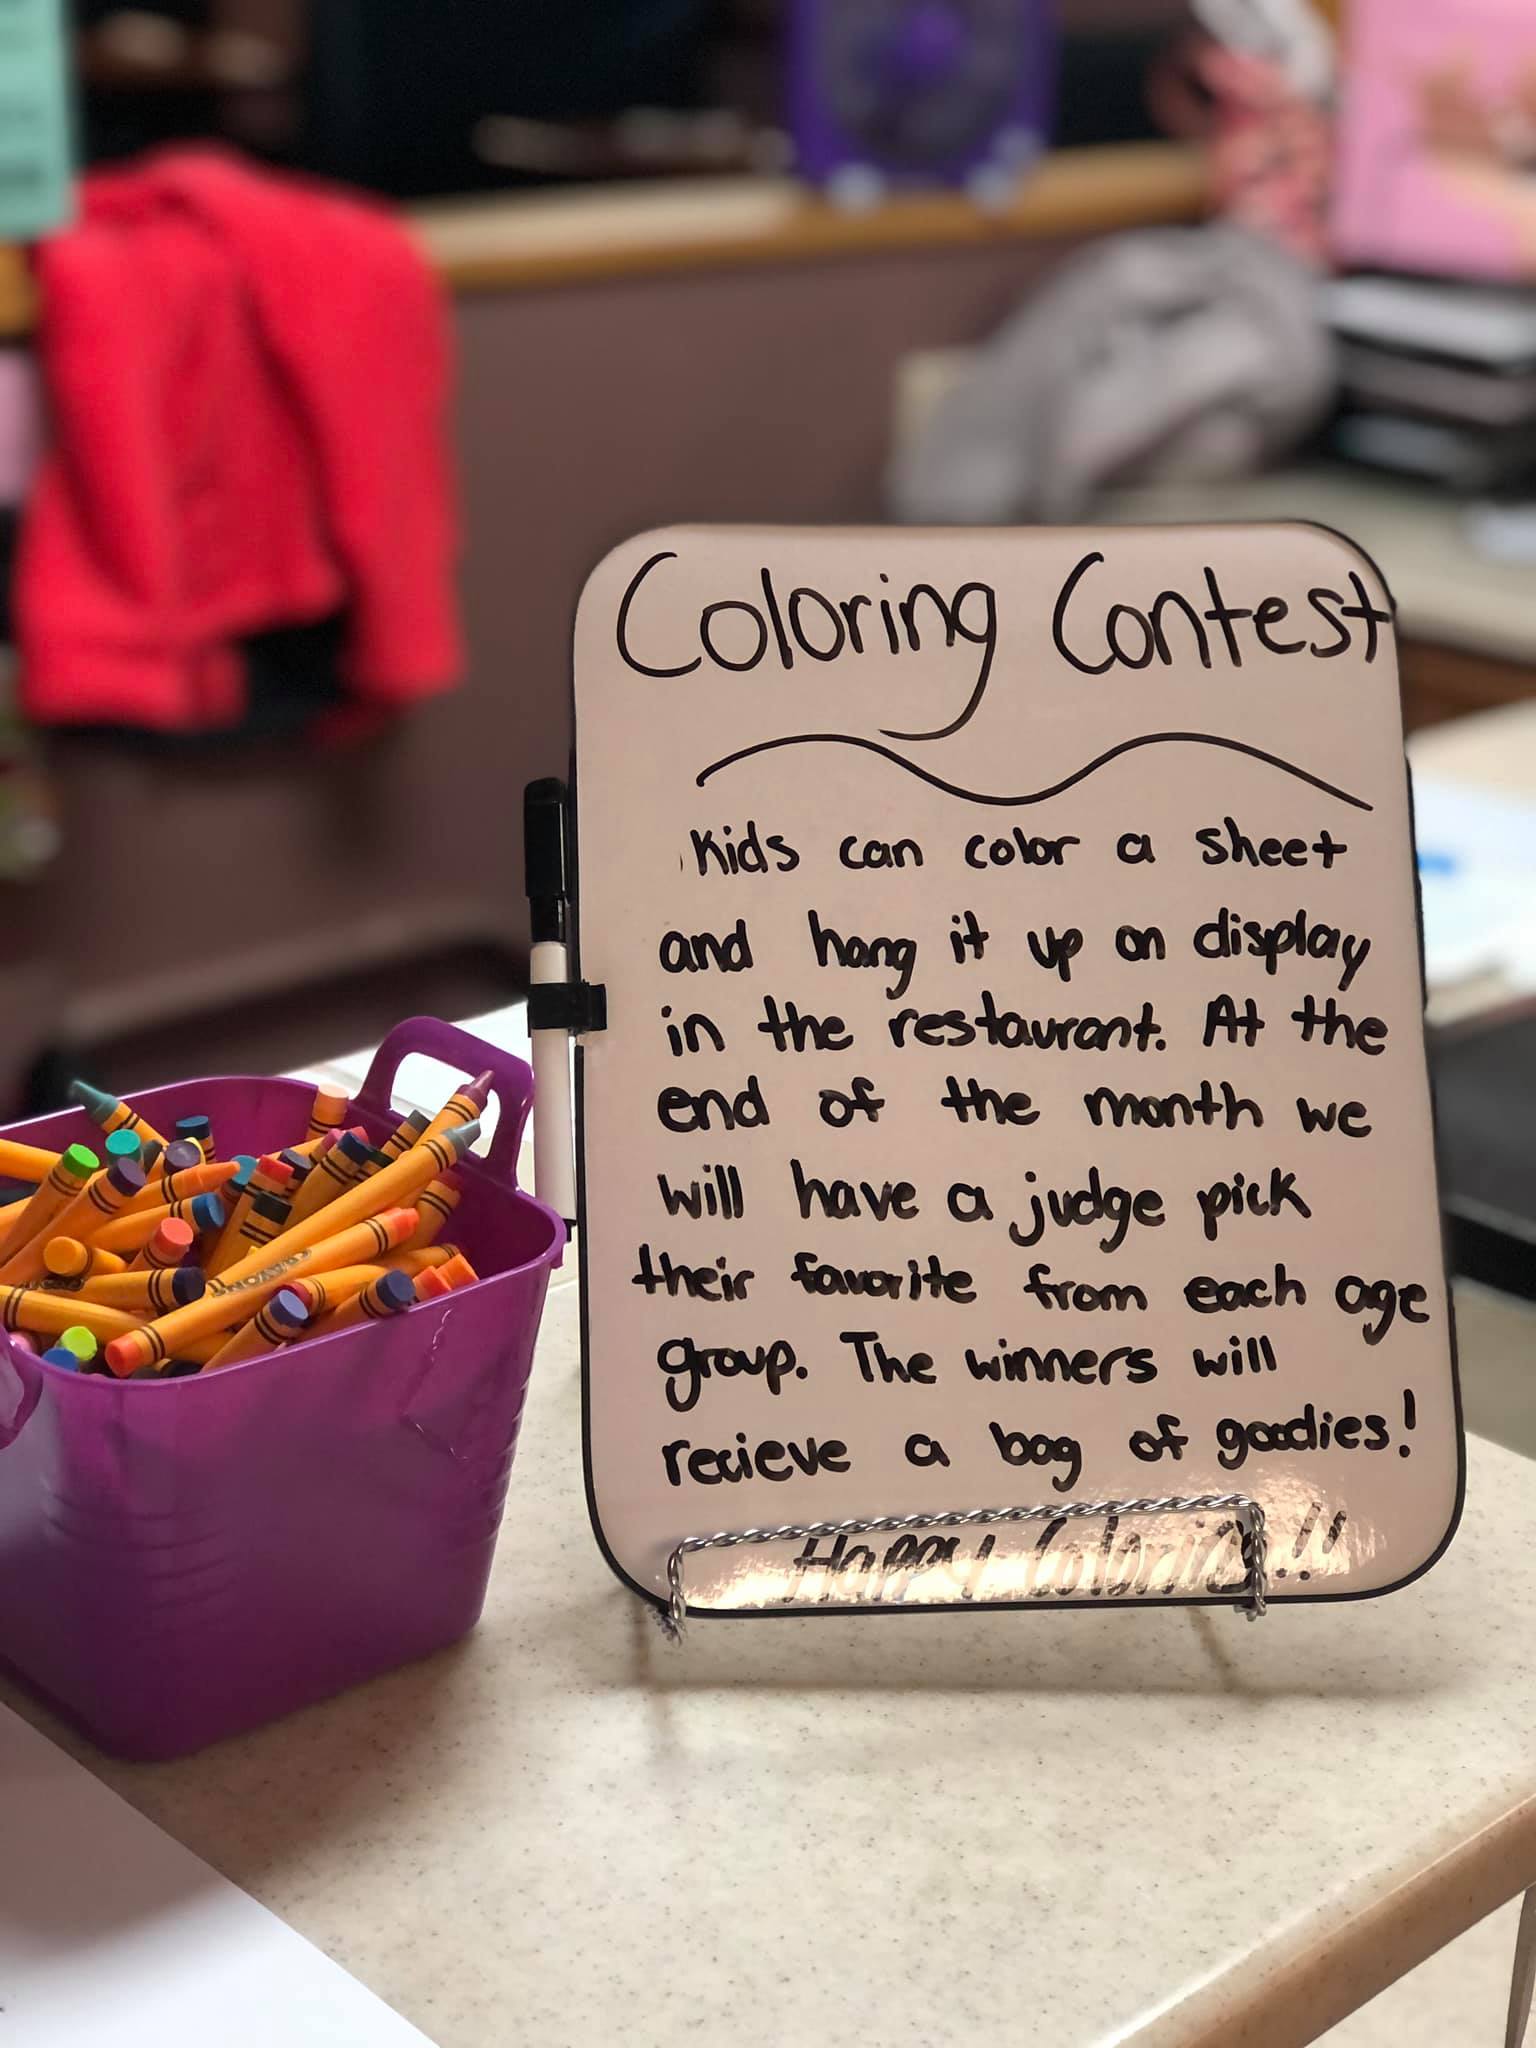 Coloring Contest
Kids can color a sheet
and hang it up on display
in the restaurant. At the
end of the month we
will have a judge pick
their favorite from each age
group. The winners will
recieve a bag of goodies!
Happy Coloring!!
CRAYON